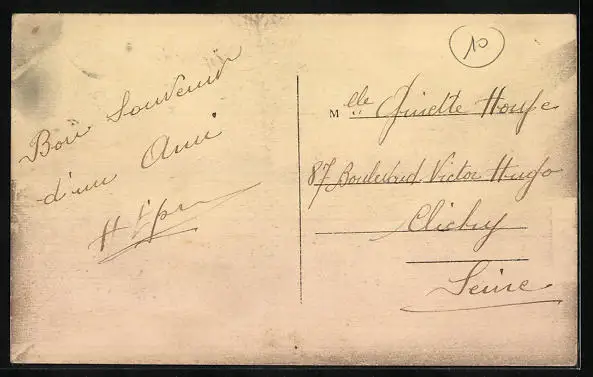 Bon Souvenir
d'un Ami
10
Mlle Ginette
87 Boulevard Victor Hugo
Clichy
Seine